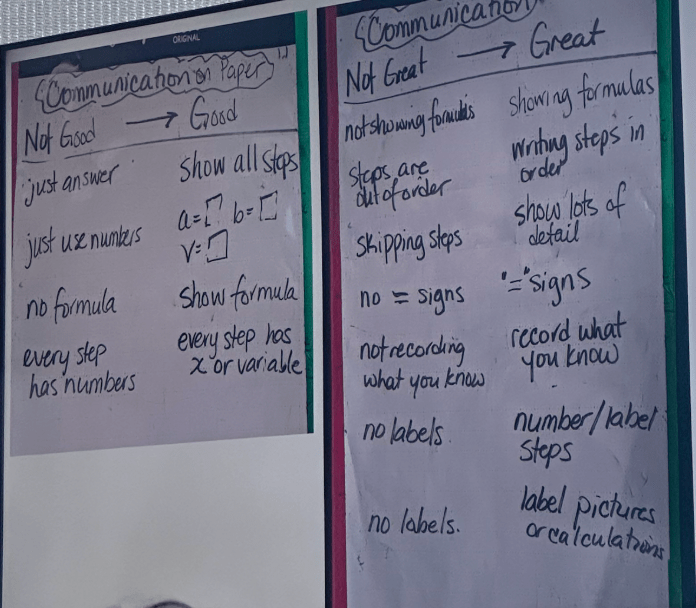 ORIGINAL
Communication on Paper
Not Good → Good
just answer
show all steps
just use numbers
a=□ b=□
v=□
no formula
show formula
every step
has numbers
every step has
x or variable
Communication
Not Great → Great
not showing formulas
showing formulas
steps are
out of order
writing steps in
order
skipping steps
show lots of
detail
no = signs
"=" signs
not recording
what you know
record what
you know
no labels
number/label
steps
no labels.
label pictures
or calculations